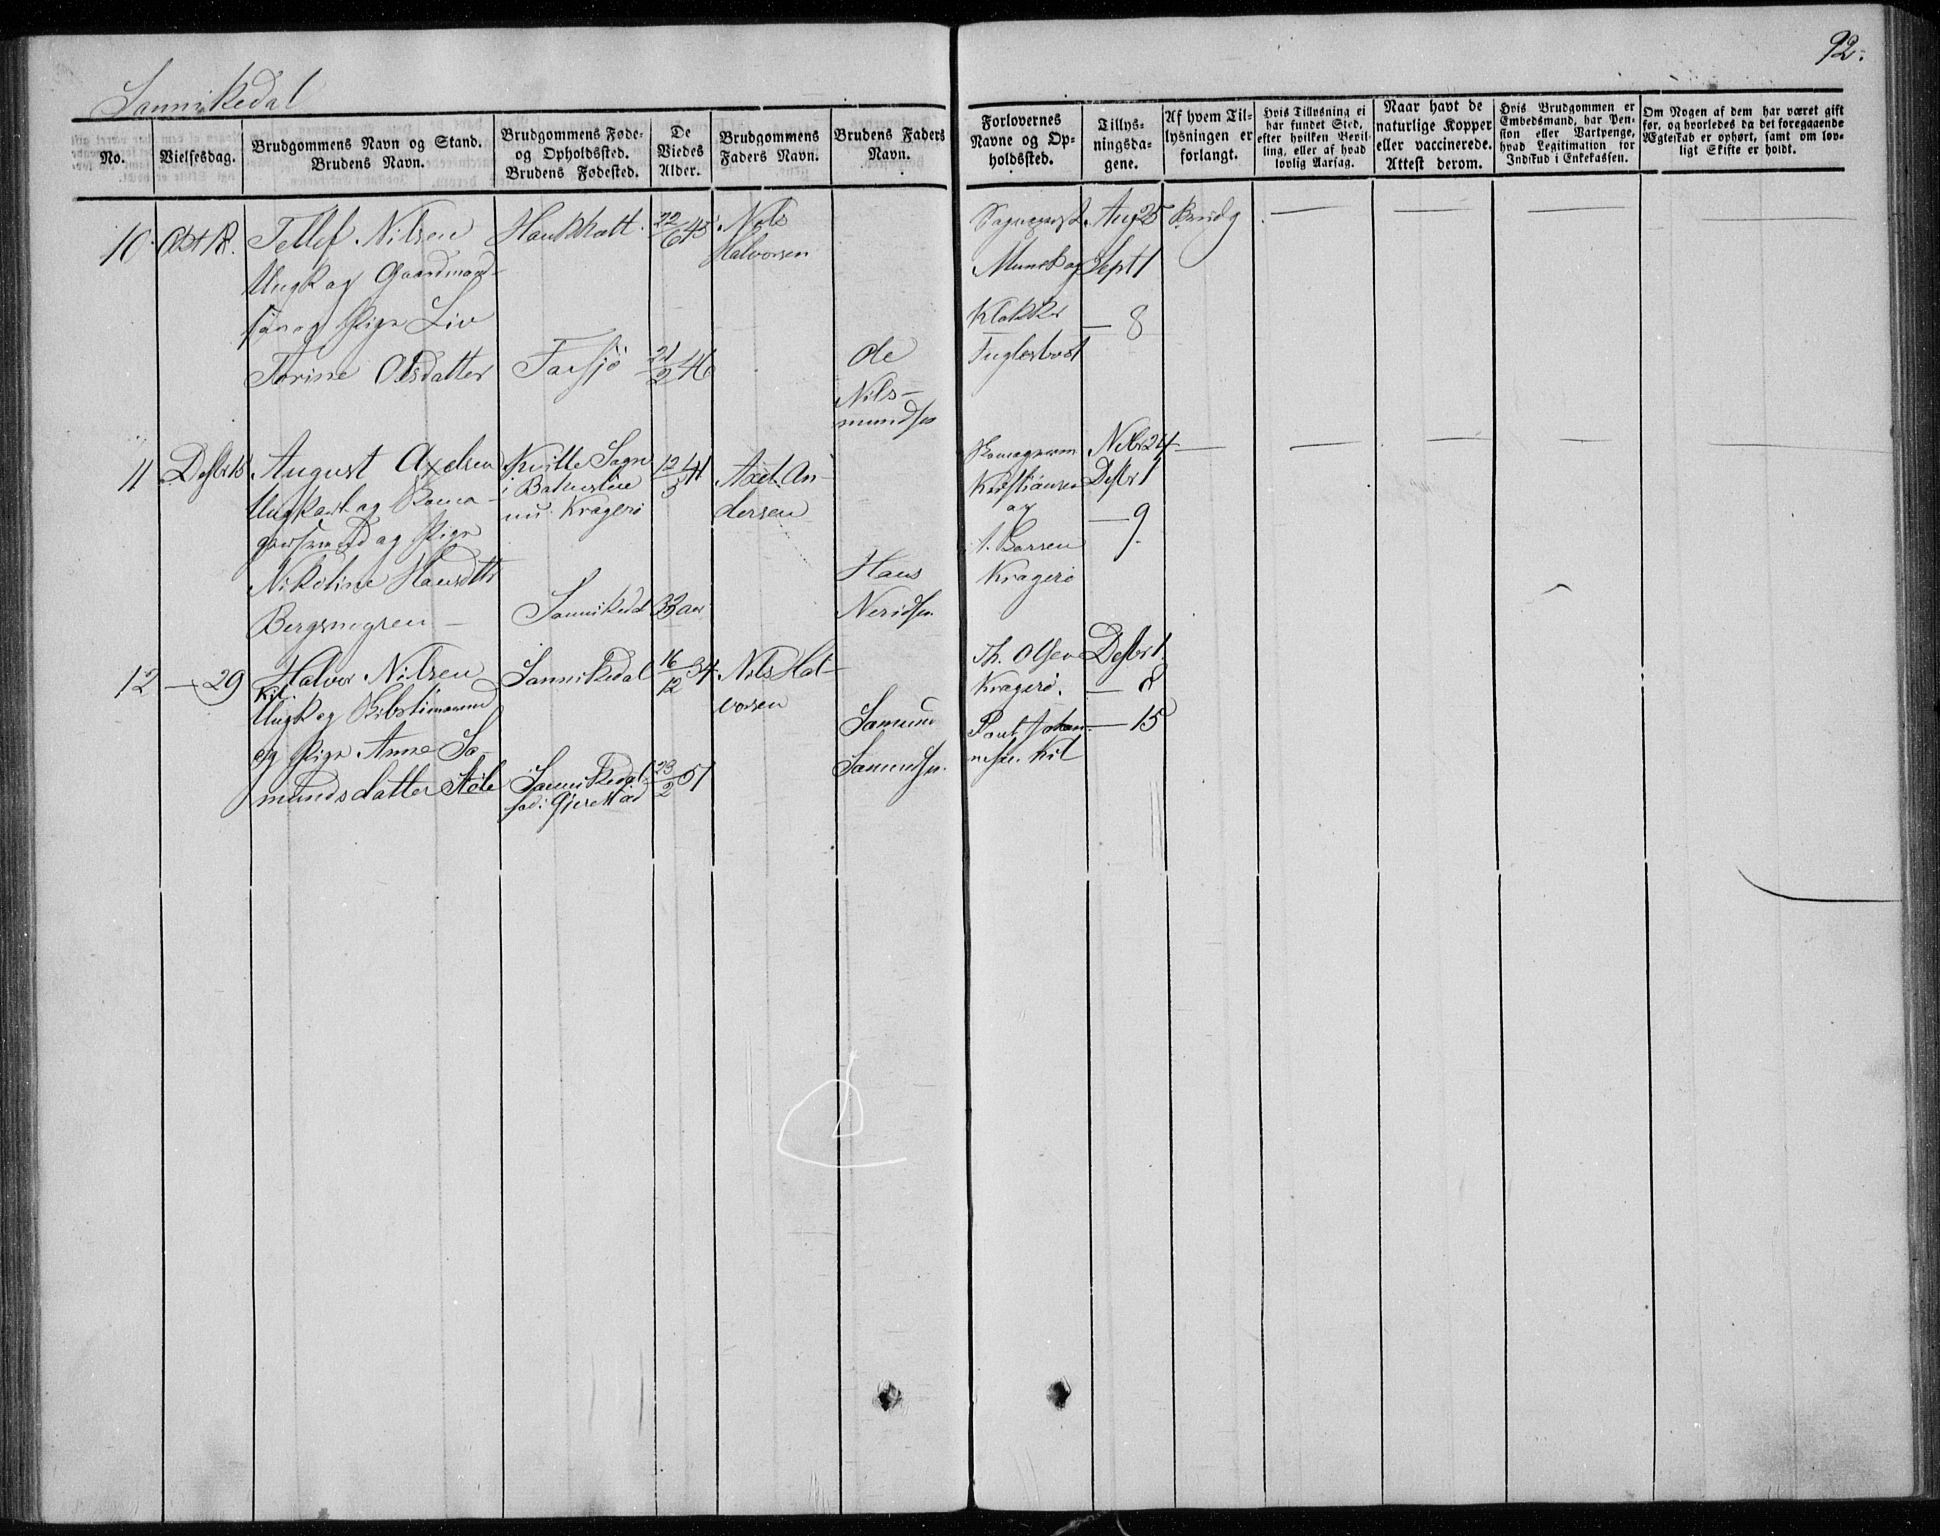 92.
Sannikedal
No.
Vielsesdag.
Brudgommens Navn og Stand.
Brudens Navn.
Brudgommens Føde-
og Opholdssted.
Brudens Fødested.
De
Viedes
Alder.
Brudgommens
Faders Navn.
Brudens Faders
Navn.
Forlovernes
Navne og Op-
holdssted.
Tillys-
ningsda-
gene.
Af hvem Til-
lysningen er
forlangt.
Hvis Tillysning ei
har fundet Sted,
efter hvilken Bevil-
ling, eller af hvad
lovlig Aarsag.
Naar havt de
naturlige Kopper
eller vaccinerede.
Attest derom.
Hvis Brudgommen er
Embedsmand, har Pen-
sion eller Vartpenge,
hvad Legitimation for
Indskud i Enkekassen.
Om Nogen af dem har været gift
før, og hvorledes da det foregaaende
Ægteskab er ophørt, samt om lov-
ligt Skifte er holdt.
10.
Tellef Nilsen
Ungk og Gaardmand
søn og Pige Liv
Torine Olsdatter
22/6 45
Nils
Halvorsen
Farsjø
21/2 46
Ole
Nils-
mundsen
Munch og
Klokker
Aug 25
Sept 1
— 8
Brudg
11
Desbr 15
August Axelsen
Ungkarl og Roma-
og Pige
Nikoline Hansdtr
Bergsmyren —
Kville Sogn
i Bahuslene
nu: Kragerø
Sannikedal
12/5 41
33 aar
Axel An-
dersen
Hans
Kristiansen
og
Kragerø
Novbr 24
Desbr 1
— 9
12
— 29
Halvor Nilsen
Kil
Ungk og
og Pige Anne Sa-
mundsdatter Støle
Sannikedal
Sannikedal
fød: Gjerestad
16/12 34
23/2 51
Nils Hal-
vorsen
Samund
Samundsen
Th. Olsen
Kragerø.
Paul Johan-
nesen. Kil
Desbr 1
— 8
— 15